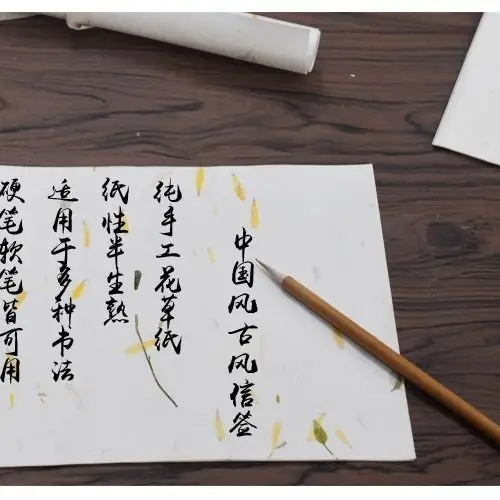 中国风古风信签
纯手工花草纸
纸性半生熟
适用于多种书法
硬笔软笔皆可用